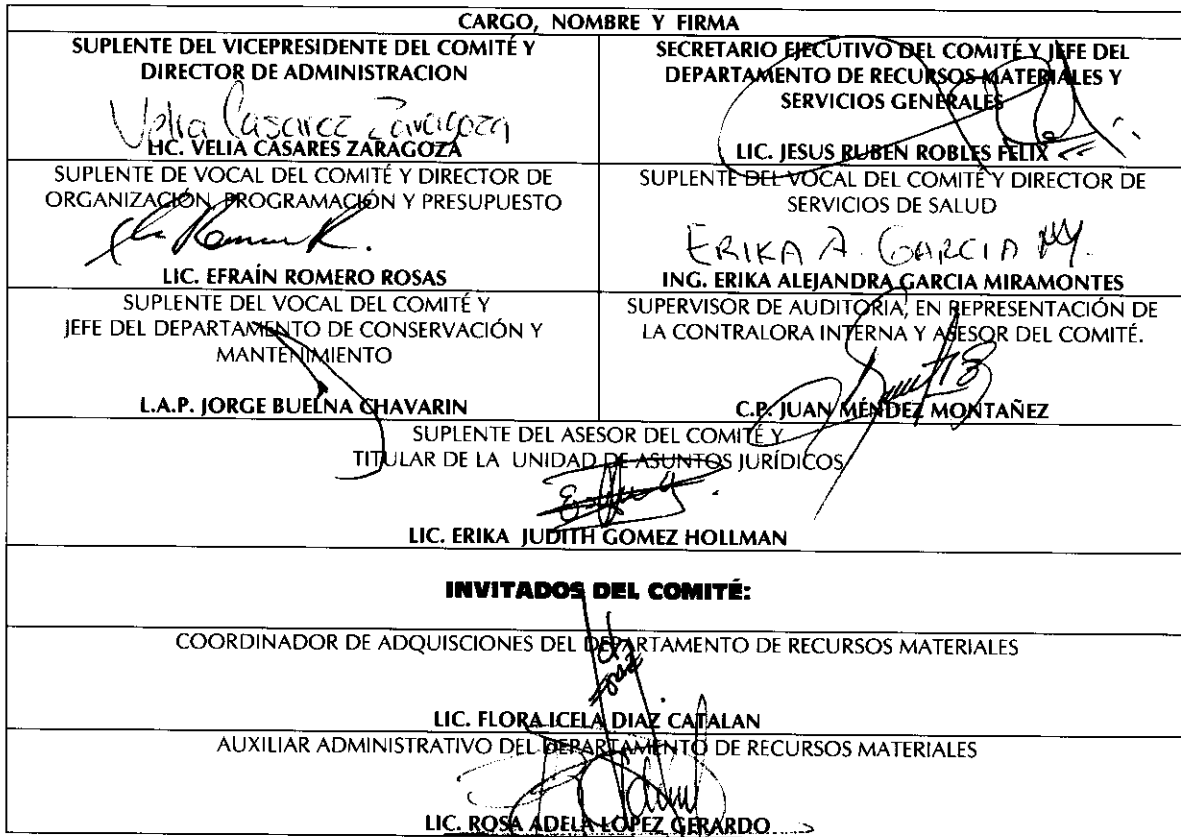 CARGO, NOMBRE Y FIRMA
SUPLENTE DEL VICEPRESIDENTE DEL COMITÉ Y
DIRECTOR DE ADMINISTRACION
Velia Casarez Zaragoza
HC. VELIA CASARES ZARAGOZA
SECRETARIO EJECUTIVO DEL COMITÉ Y JEFE DEL
DEPARTAMENTO DE RECURSOS MATERIALES Y
SERVICIOS GENERALES
LIC. JESUS RUBEN ROBLES FELIX
SUPLENTE DE VOCAL DEL COMITÉ Y DIRECTOR DE
ORGANIZACIÓN, PROGRAMACIÓN Y PRESUPUESTO
LIC. EFRAÍN ROMERO ROSAS
SUPLENTE DEL VOCAL DEL COMITÉ Y DIRECTOR DE
SERVICIOS DE SALUD
ERIKA A. GARCIA M.
ING. ERIKA ALEJANDRA GARCIA MIRAMONTES
SUPLENTE DEL VOCAL DEL COMITÉ Y
JEFE DEL DEPARTAMENTO DE CONSERVACIÓN Y
MANTENIMIENTO
L.A.P. JORGE BUELNA CHAVARIN
SUPERVISOR DE AUDITORIA, EN REPRESENTACIÓN DE
LA CONTRALORA INTERNA Y ASESOR DEL COMITÉ.
C.P. JUAN MÉNDEZ MONTAÑEZ
SUPLENTE DEL ASESOR DEL COMITÉ Y
TITULAR DE LA UNIDAD DE ASUNTOS JURÍDICOS
LIC. ERIKA JUDITH GOMEZ HOLLMAN
INVITADOS DEL COMITÉ:
COORDINADOR DE ADQUISCIONES DEL DEPARTAMENTO DE RECURSOS MATERIALES
LIC. FLORA ICELA DIAZ CATALAN
AUXILIAR ADMINISTRATIVO DEL DEPARTAMENTO DE RECURSOS MATERIALES
LIC. ROSA ADELA LOPEZ GERARDO